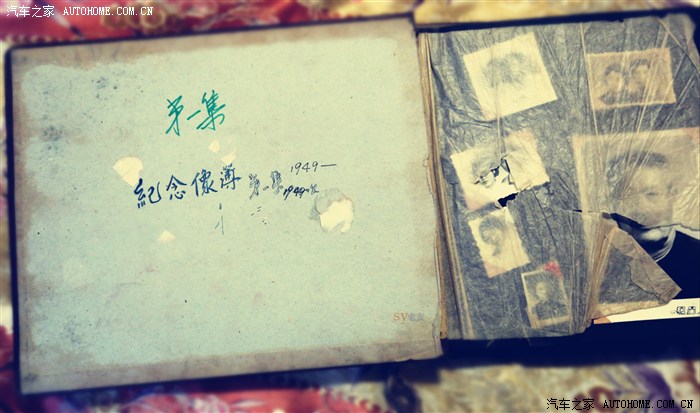 汽车之家 AUTOHOME.COM.CN
第一集
1949—
紀念像薄 第一集
1949
SV
汽车之家 AUTOHOME.COM.CN